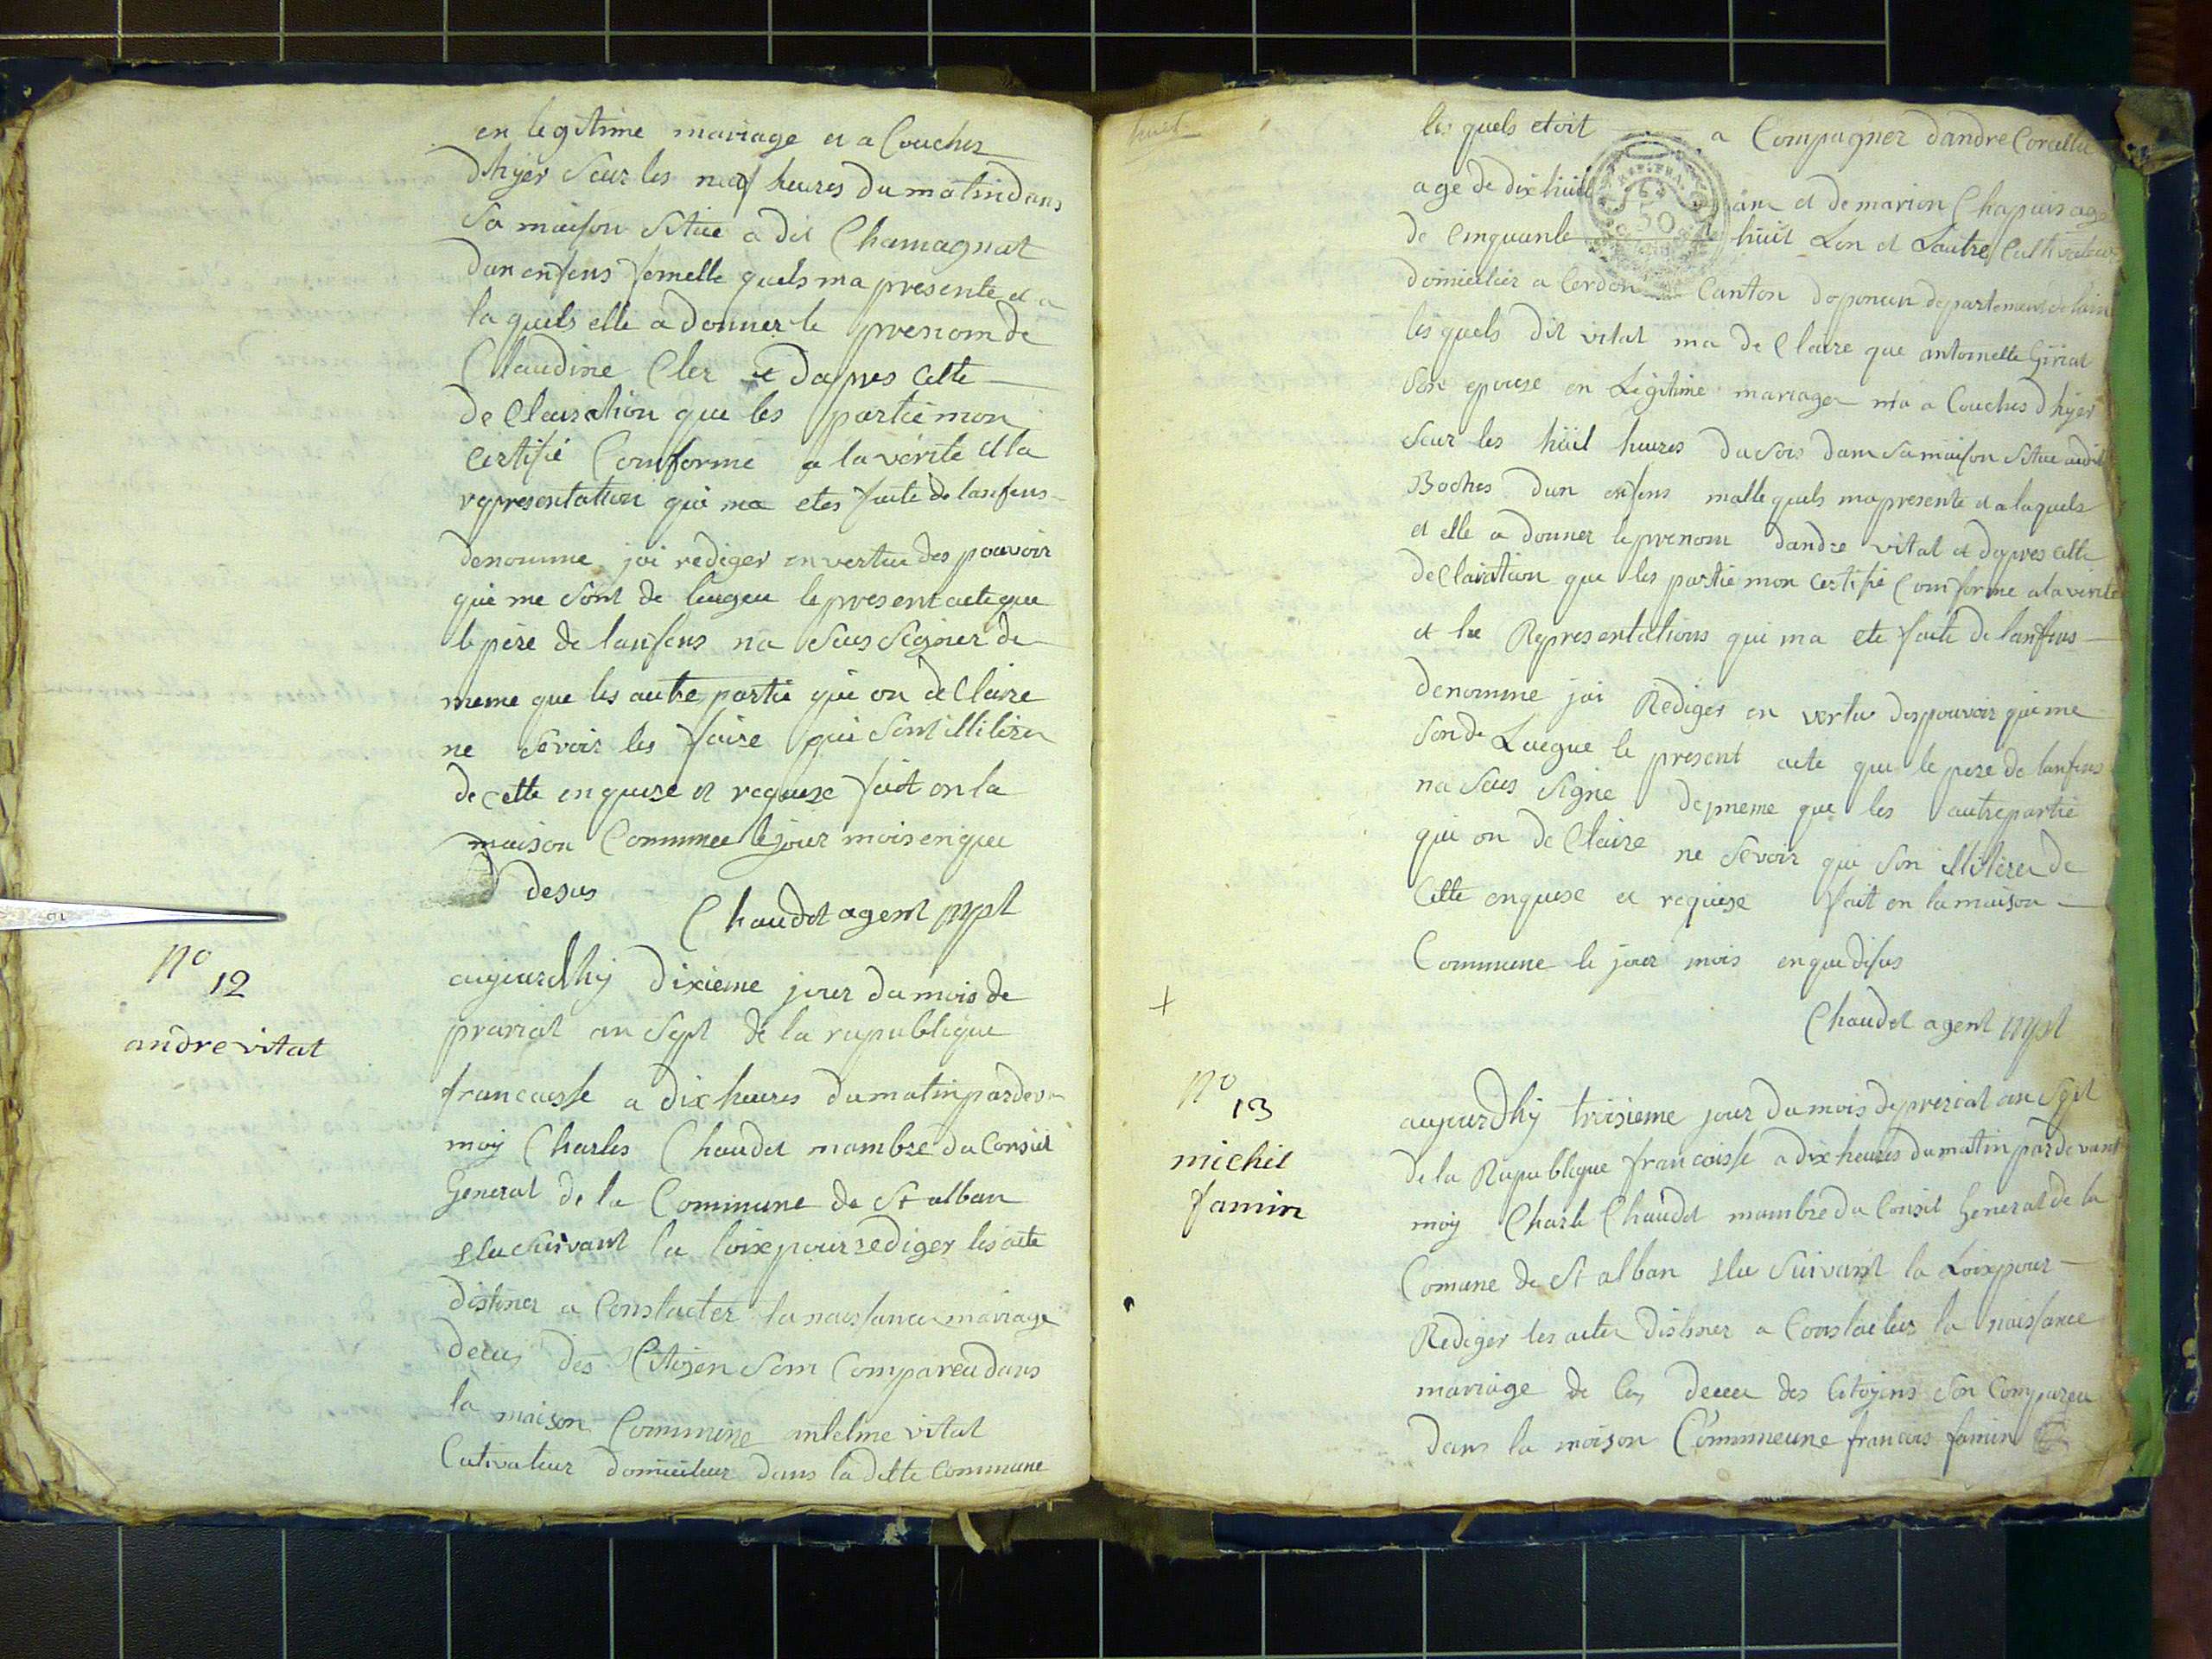 en legitime mariage et a Couches
dhyer seur les neuf heures du matin dans
sa maison sitúe a dit Chamagnat
dun enfens femelle quels ma presente et a
la quels elle a donner le prenom de
Claudine Cler et dapres cette
de Clairation que les partie mon
certifié Comforme a la vérité et la
representation qui ma etes faite de lanfens
denomme jai rediger en vertue des pouvoir
qui me sont de leugeu le present acte que
le père de lanfens na seus segner de
meme que les autre partie qui on de Claire
ne sevoir les faire qui sont illiterer
de cette enquise et requise fait en la
maison Commune le jour mois en que
desus
Chaudet agent mpl
No 12
andre vital
aujourdhy dixieme jour du mois de
prarial an sept de la republique
francaisse a dix heures du matin par dev
moy Charles Chaudet mambre du Conseil
General de la Commune de St alban
elu suivant la loix pour rediger les acte
distiner a Constacter la naissance mariage
deces des Citoyen som Compareu dans
la maison Commune antelme vital
Cutivateur domicileur dans la ditte commune
huit
les quels etoit a Compagner dandre Corcelle
age de dix huit ans et de marion Chapuis age
de Cinquante huit Lon et Lautre Cultivateur
domicilier a Cerdon Canton de poncin departement de lain
les quels dit vital ma de Claire que antoinette Giriat
son epouse en Legitime mariage ma a Couches dhyer
seur les huit heures du sois dans sa maison sitúe audit
Boches dun enfens malle quels ma presente et a la quels
et elle a donner le prenom dandre vital et dapres cette
de Clairation que les partie mon certifié Comforme a la verite
et la Representations qui ma ete faite de lanfens
denomme jai Rediger en vertu des pouvoir qui me
son de Luegue le present acte que le pere de lanfens
na seus signe de meme que les autre partie
qui on de Claire ne sevoir qui son illiterer de
Cette enquise et requise fait en la maison
Commune le jour mois en que desus
Chaudet agent mpl
No 13
michel
famin
aujourdhy troisieme jour du mois de prerial an sept
de la Rupublique francoisse a dix heures du matin par devant
moy Charle Chaudet mambre du Conseil General de la
Comune de St alban elu suivant la Loix pour
Rediger les actes distiner a Constacter la naissance
mariage de les decer des Citoyens son Compareu
dans la maison Commeune francois famin